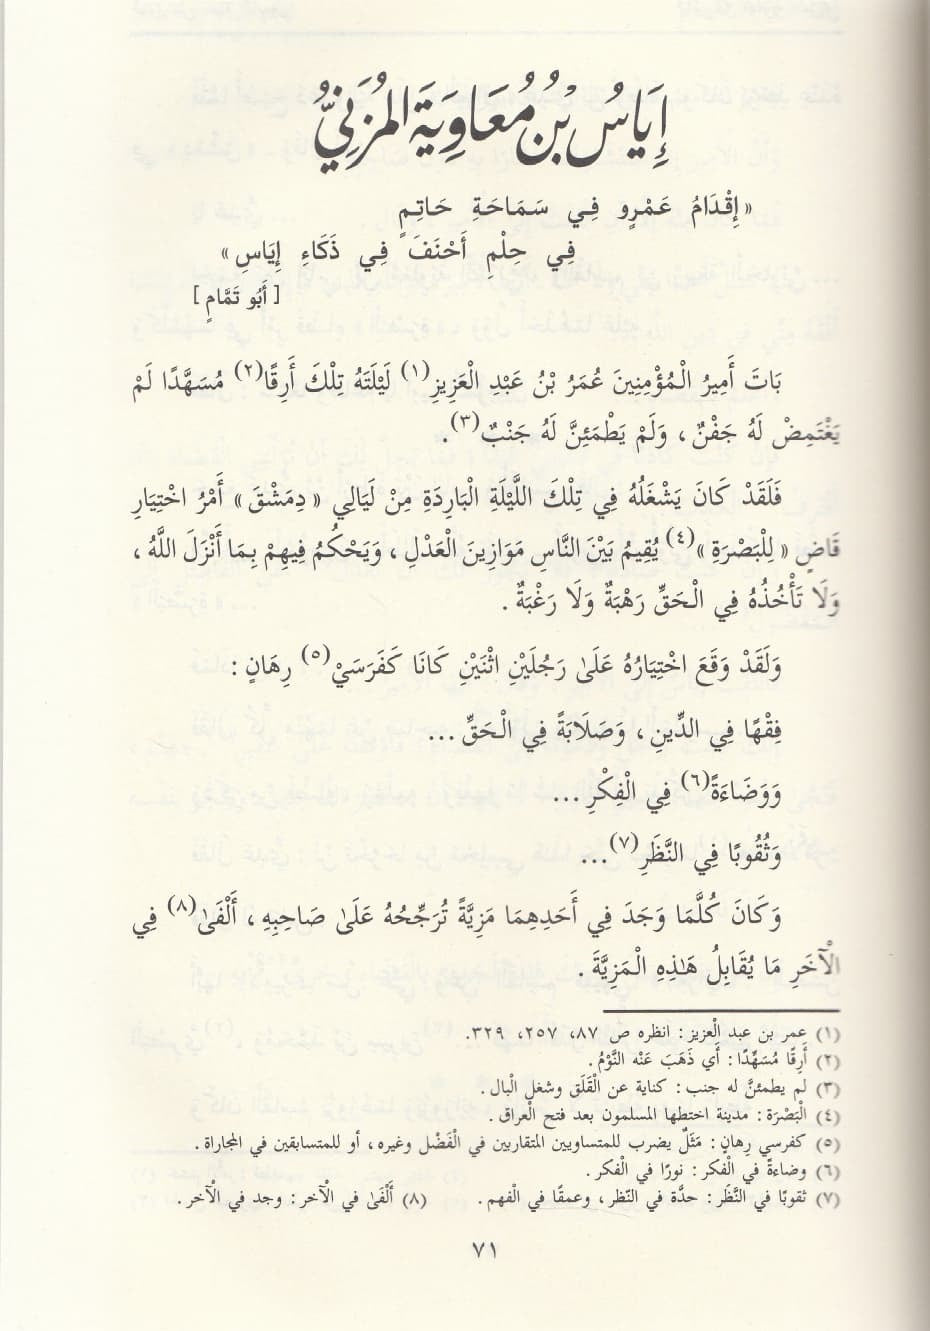 إِيَاسُ بْنُ مُعَاوِيَةَ الْمُزَنِيُّ
« إِقْدَامُ عَمْرٍو فِي سَمَاحَةِ حَاتِمٍ
فِي حِلْمِ أَحْنَفَ فِي ذَكَاءِ إِيَاسِ »
[ أَبُو تَمَّامٍ ]
بَاتَ أَمِيرُ الْمُؤْمِنِينَ عُمَرُ بْنُ عَبْدِ الْعَزِيزِ(١) لَيْلَتَهُ تِلْكَ أَرِقًا(٢) مُسَهَّدًا لَمْ
يَغْتَمِضْ لَهُ جَفْنٌ ، وَلَمْ يَطْمَئِنَّ لَهُ جَنْبٌ(٣).
فَلَقَدْ كَانَ يَشْغَلُهُ فِي تِلْكَ اللَّيْلَةِ الْبَارِدَةِ مِنْ لَيَالِي « دِمَشْقَ » أَمْرُ اخْتِيَارِ
قَاضٍ « لِلْبَصْرَةِ »(٤) يُقِيمُ بَيْنَ النَّاسِ مَوَازِينَ الْعَدْلِ ، وَيَحْكُمُ فِيهِمْ بِمَا أَنْزَلَ اللَّهُ ،
وَلَا تَأْخُذُهُ فِي الْحَقِّ رَهْبَةٌ وَلَا رَغْبَةٌ .
وَلَقَدْ وَقَعَ اخْتِيَارُهُ عَلَىٰ رَجُلَيْنِ اثْنَيْنِ كَانَا كَفَرَسَيْ(٥) رِهَانٍ :
فِقْهًا فِي الدِّينِ ، وَصَلَابَةً فِي الْحَقِّ ...
وَوَضَاءَةً(٦) فِي الْفِكْرِ ...
وَثُقُوبًا فِي النَّظَرِ(٧)...
وَكَانَ كُلَّمَا وَجَدَ فِي أَحَدِهِمَا مَزِيَّةً تُرَجِّحُهُ عَلَىٰ صَاحِبِهِ ، أَلْفَىٰ(٨) فِي
الْآخَرِ مَا يُقَابِلُ هَٰذِهِ الْمَزِيَّةَ .
(١) عمر بن عبد الْعزيز : انظره ص ٨٧، ٢٥٧، ٣٢٩.
(٢) أَرِقًا مُسَهَّدًا : أَي ذَهَبَ عَنْه النَّوْمُ.
(٣) لم يطمئنَّ له جنب : كناية عن الْقَلَق وشغل الْبال .
(٤) الْبَصْرَة : مدينة اختطها المسلمون بعد فتح الْعراق .
(٥) كفرسي رِهان : مَثَلٌ يضرب للمتساويين المتقاربين في الْفَضْل وغيره ، أو للمتسابقين في المجاراة .
(٦) وضاءةً في الْفكر : نورًا في الْفكر .
(٧) ثقوبًا في النَّظَر : حدَّة في النّظر ، وعمقًا في الْفهم . (٨) أَلْفَىٰ في الْآخر : وجد في الْآخر .
٧١